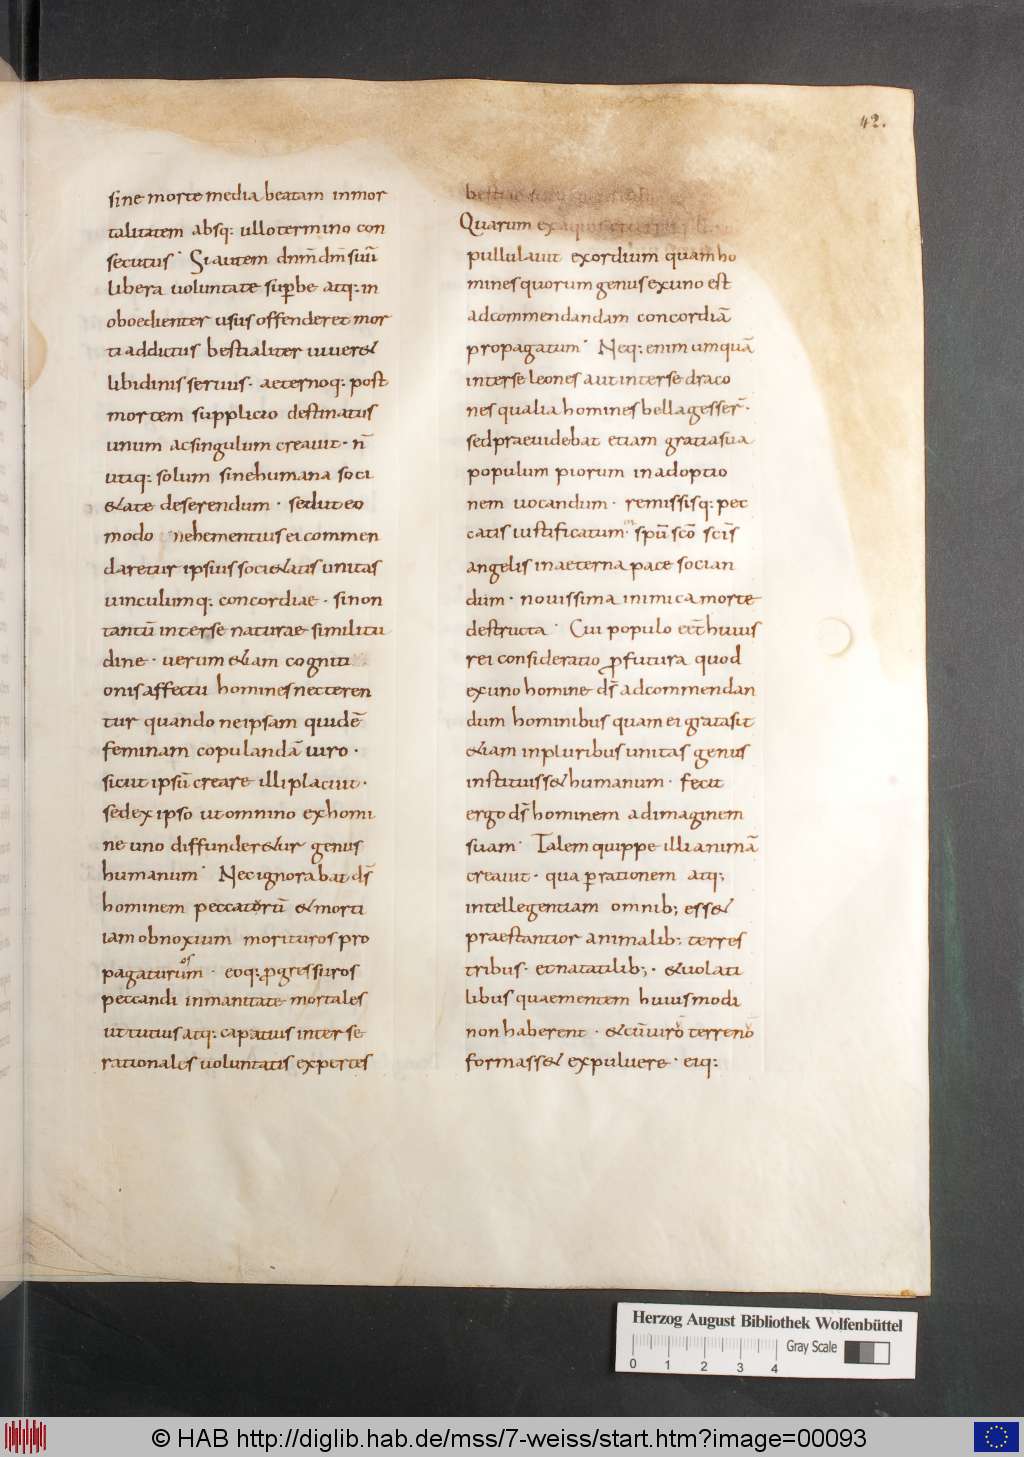 42.
sine morte media beatam inmor
talitatem absq: ullo termino con
secutus· Si autem dn̄m dm̄ suū
libera uoluntate sup̄be atq: in
oboedienter usus offenderet mor
ti addictus bestialiter uiuer&
libidinis seruus· aeternoq: post
mortem supplicio destinatus
unum ac singulum creauit· n̄
utiq: solum sine humana soci
&ate deserendum· sed ut eo
modo uehementius ei commen
daretur ipsius soci&atis unitas
uinculumq: concordiae· si non
tantū inter se naturae similitu
dine· uerum &iam cogniti
onis affectu homines necteren
tur quando ne ipsam quidē
feminam copulandā uiro·
sicut ipsū creare illi placuit·
sed ex ipso ut omnino ex homi
ne uno diffunder&ur genus
humanum· Nec ignorabat ds̄
hominem peccatorū & morti
iam obnoxium morituros pro
os
pagaturum· eoq: ꝓgressuros
peccandi inmanitate mortales
ut tutius atq: capatius inter se
rationales uoluntatis expertes
Quarum ex aquis
pullulauit exordium quam ho
mines quorum genus ex uno est
ad commendandam concordiā
propagatum· Neq: enim umquā
inter se leones aut inter se draco
nes qualia homines bella gesser̄·
sed praeuidebat etiam gratia sua
populum piorum in adoptio
nem uocandum· remissisq: pec
catis iustificatum· spū scō scīs
angelis in aeterna pace socian
dum· nouissima inimica morte
destructa· Cui populo eēt huius
rei consideratio ꝓfutura quod
ex uno homine ds̄ ad commendan
dum hominibus quam ei grata sit
&iam in pluribus unitas genus
instituiss& humanum· fecit
ergo ds̄ hominem ad imaginem
suam· Talem quippe illi animā
creauit· qua p̄ rationem atq;
intellegentiam omnib; ess&
praestantior animalib: terres
tribus· et natatilib;· & uolati
libus quae mentem huiusmodi
non haberent· & cū uirō terrenō
formass& ex puluere· eiq:
Herzog August Bibliothek Wolfenbüttel
Gray Scale
0 1 2 3 4
© HAB http://diglib.hab.de/mss/7-weiss/start.htm?image=00093